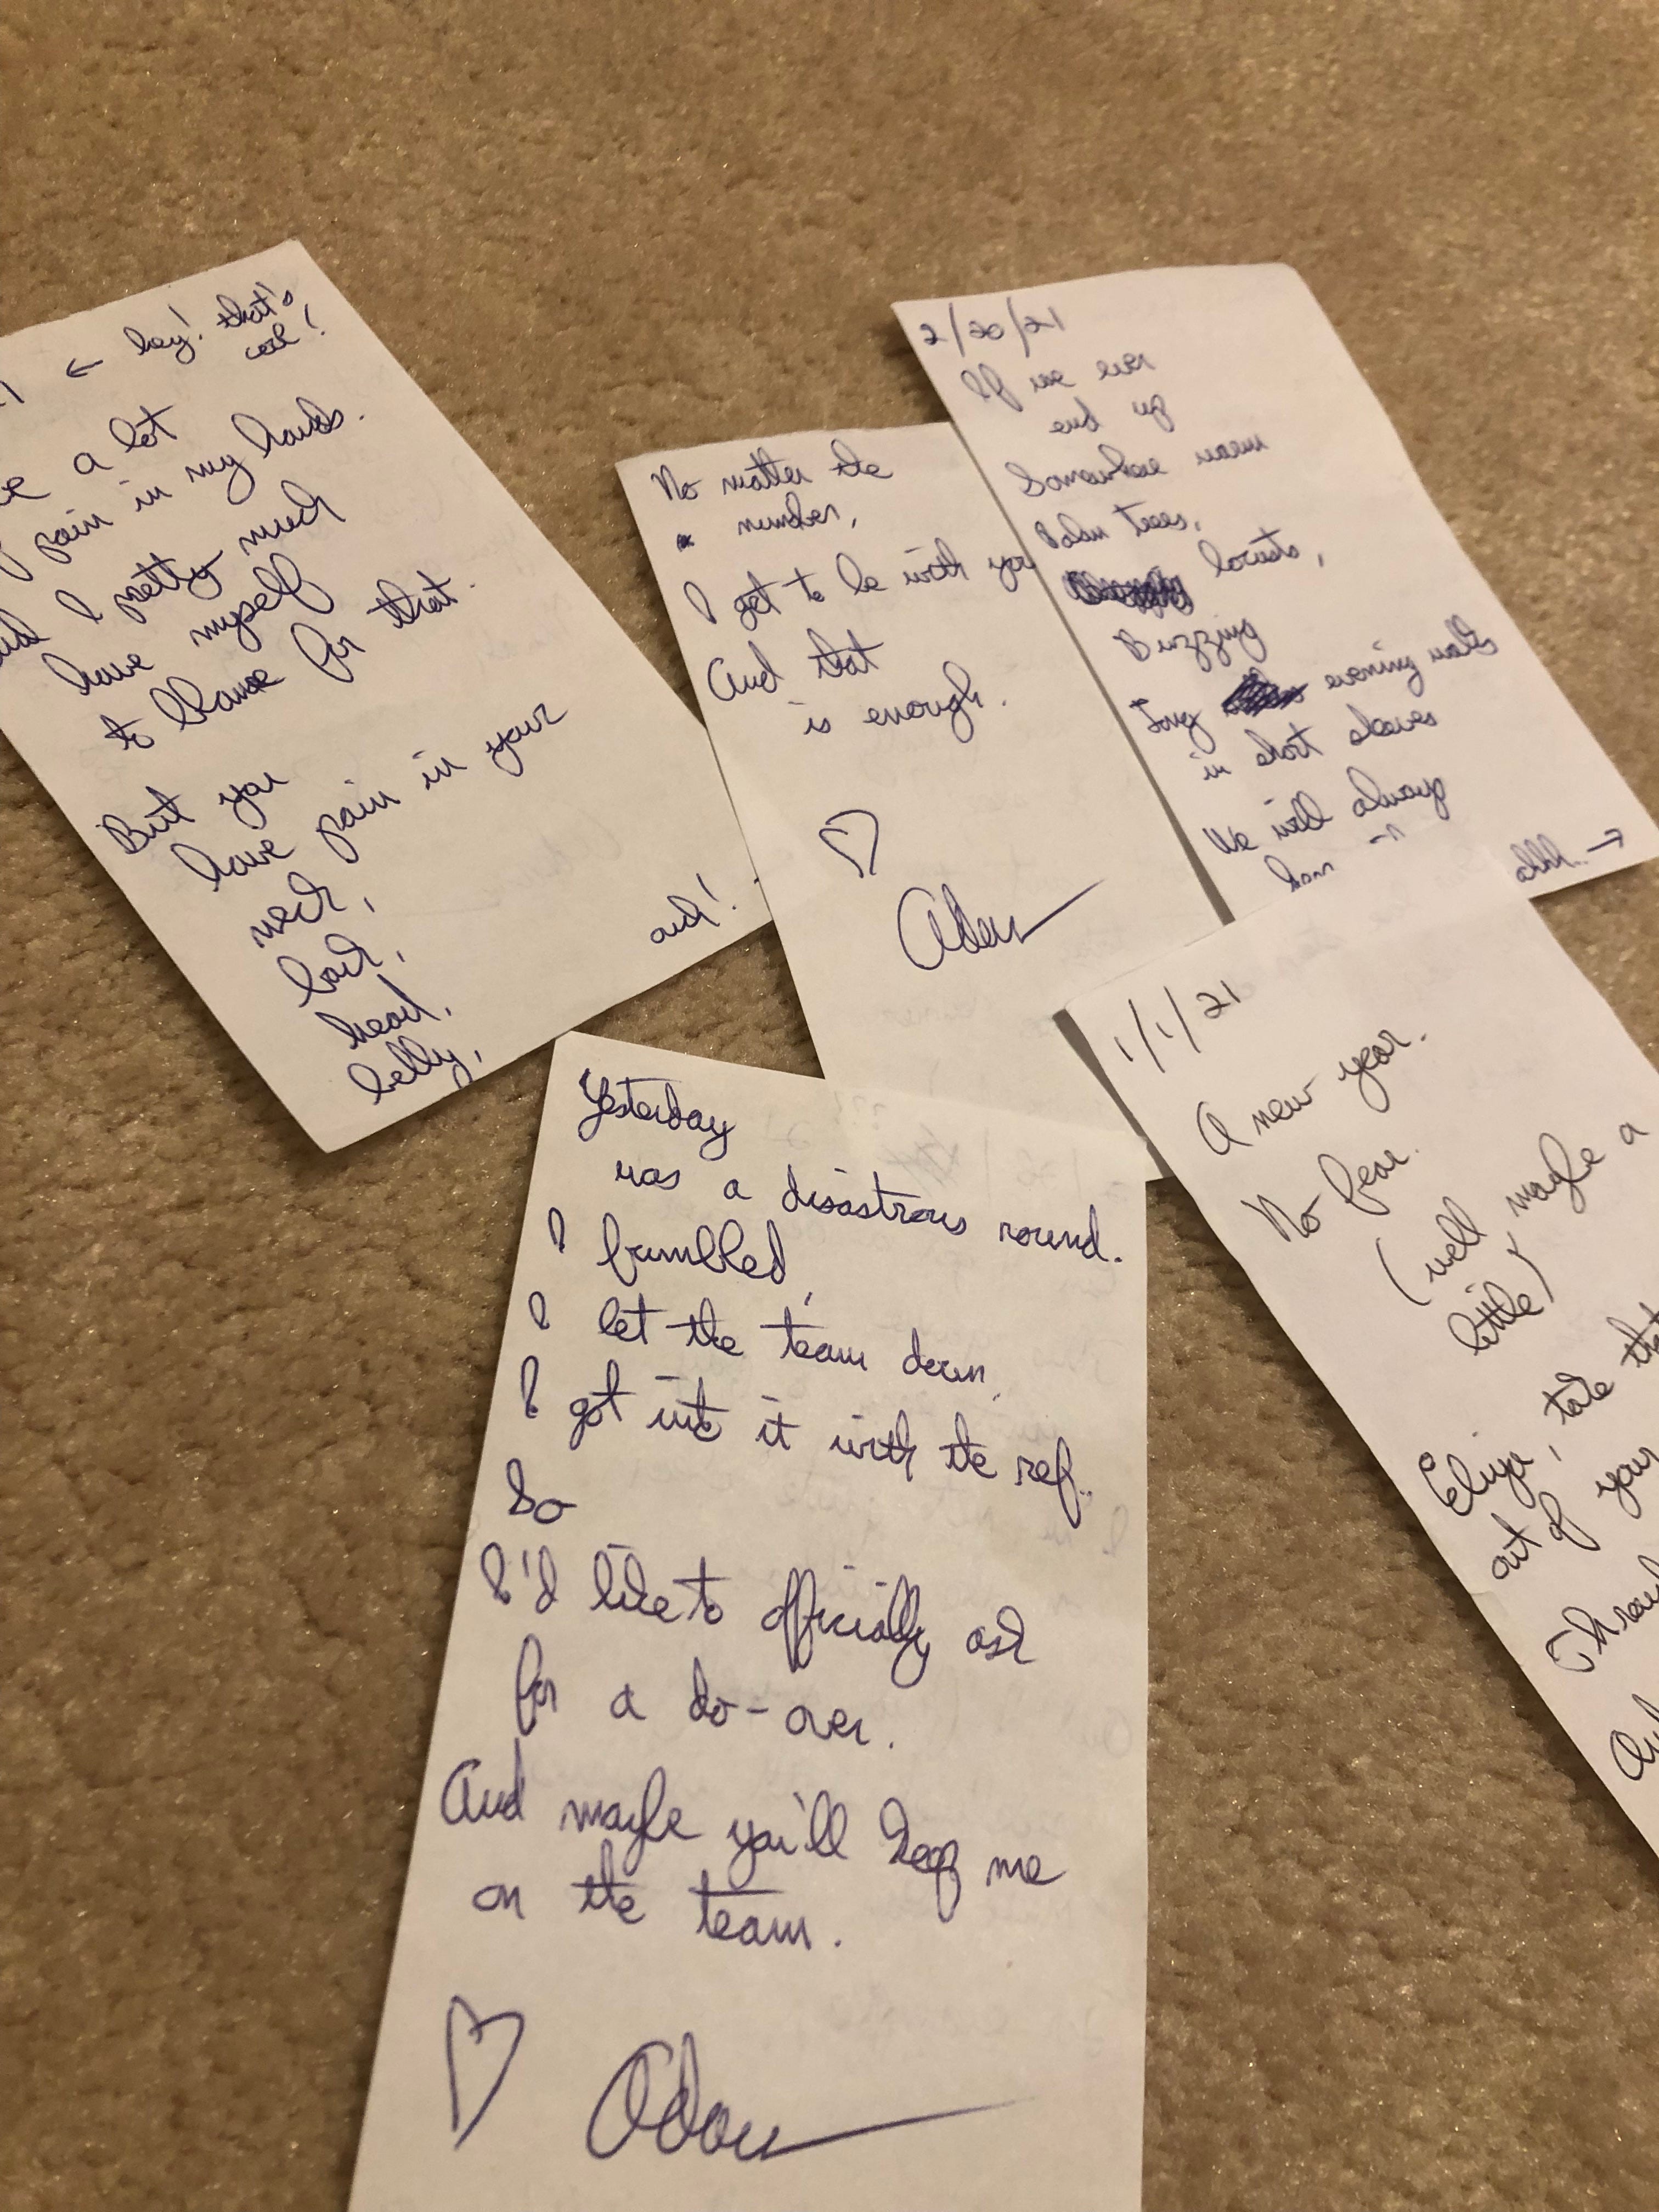 ← hey! that's
cool!
a lot
pain in my hands.
I pretty much
have myself
to blame for that.
But you
have pain in your
neck,
back,
head,
belly,
and!
No matter the
number,
I get to be with you
And that
is enough.
♡
Adam
2/20/21
If we ever
end up
Somewhere warm
Palm trees,
locusts,
Buzzing
Long evening walks
in short sleeves
We will always
ahhh... →
1/1/21
A new year.
No fear.
(well maybe a
little)
take that
out of your
Yesterday
was a disastrous round.
I fumbled,
I let the team down,
I got into it with the ref.
So
I'd like to officially ask
for a do-over.
And maybe you'll keep me
on the team.
♡ Adam